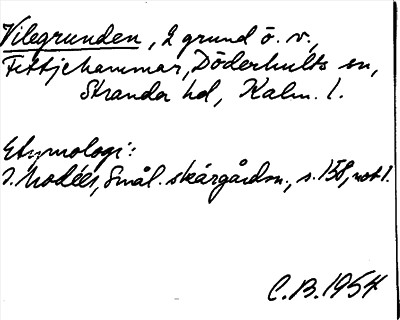 Vilegrunden, 2 grund ö. v.,
Fittjehammar, Döderhults sn,
Stranda hd, Kalm. l.
Etymologi:
J. Modéer, Smål. skärgårdsn., s. 158, not 1.
C.B. 1954